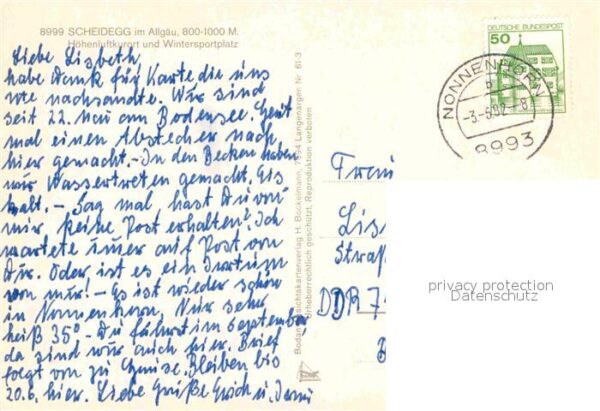 8999 SCHEIDEGG im Allgäu, 800-1000 M.
Höhenluftkurort und Wintersportplatz
Liebe Lisbeth
habe Dank für Karte die uns
wir nachsandte. Wir sind
seit 22. Mai am Bodensee. Heut
mal einen Abstecher nach
hier gemacht. - In den Becken haben
wir Wassertreten gemacht. Eis
kalt. - Sag mal hast Du von
mir keine Post erhalten? Ich
wartete immer auf Post von
Dir. Oder ist es ein Irrtum
von mir! - Es ist wieder schön
in Nonnenhorn. Nur sehr
heiß 35° - Du fährst im September
da sind wir auch hier. Brief
folgt von zu Hause. Bleiben bis
20.6. hier. Liebe Grüße Erich u.
Bodan-Ansichtskartenverlag H. Bockelmann, 7994 Langenargen, Nr. 61-3
Urheberrechtlich geschützt, Reproduktion verboten
DEUTSCHE BUNDESPOST
50
NONNENHORN
b
-3.-6.82 -8
8993
Frau
Lis
Straß
DDR 7
privacy protection
Datenschutz